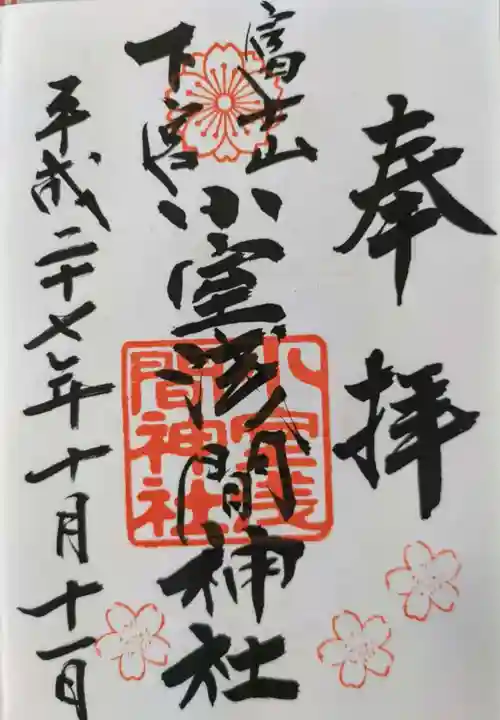 奉拝
富士山
下宮
小室浅間神社
小室浅
間神社
平成二十七年十月十一日